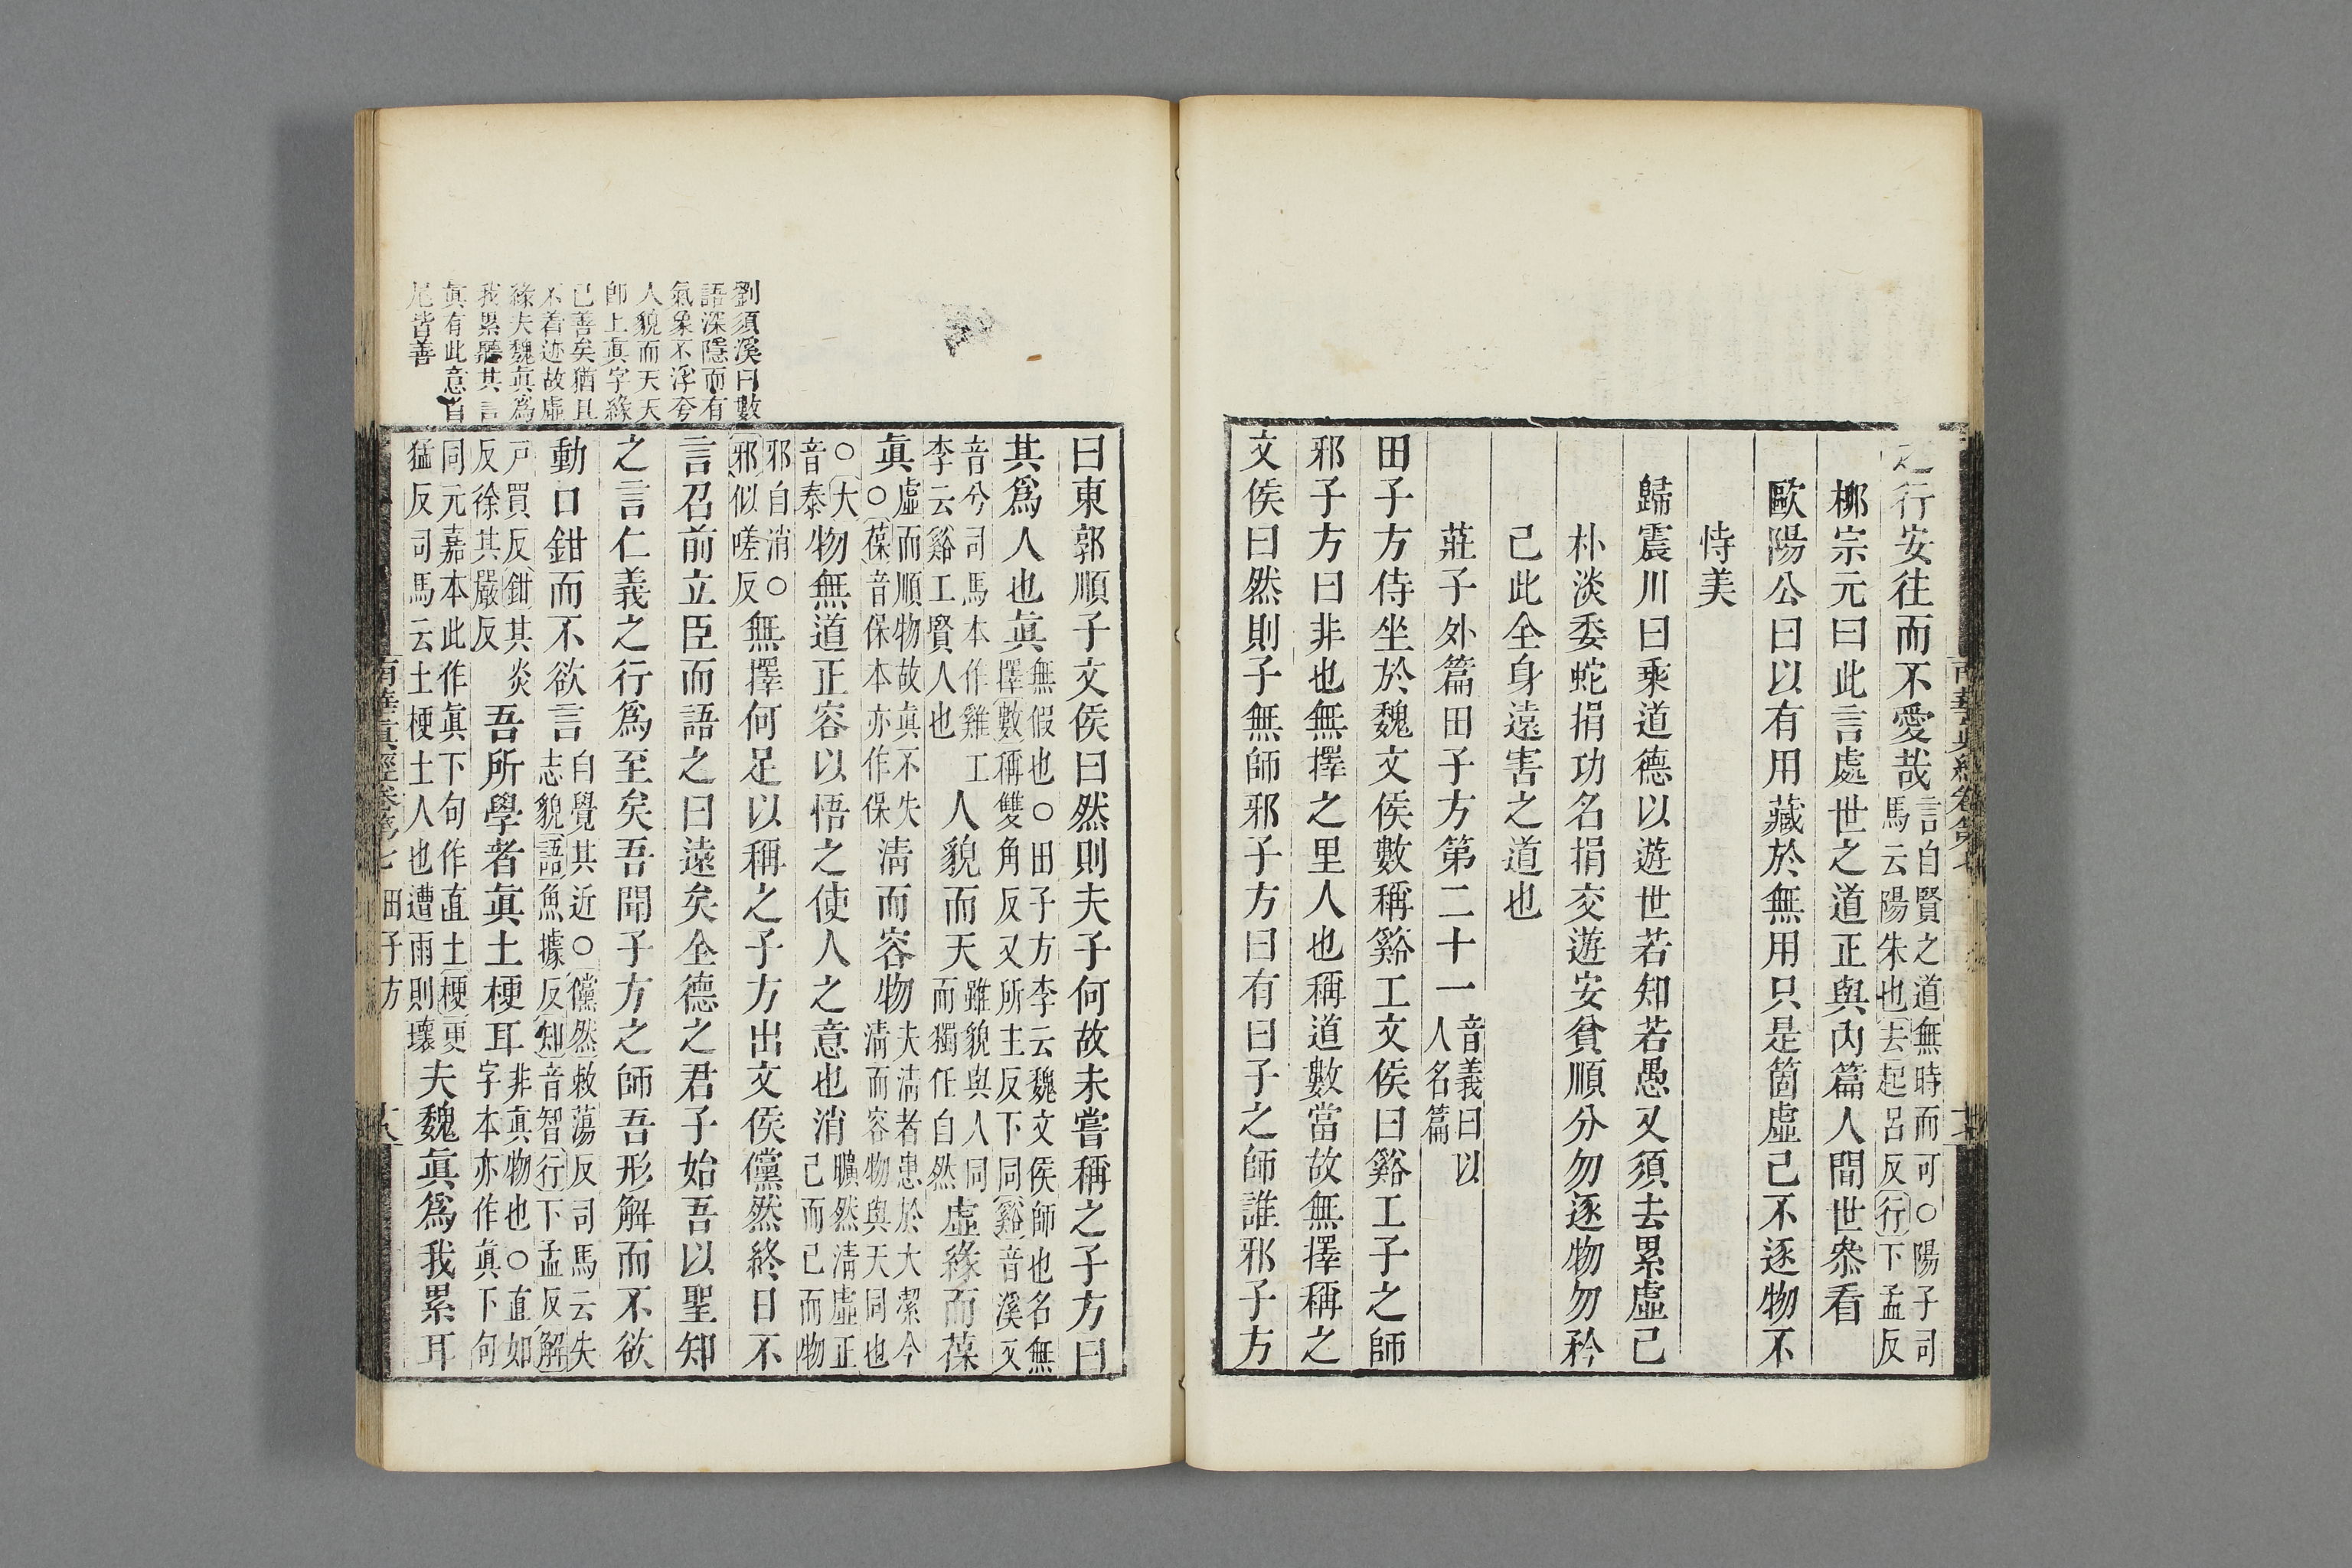 之行安往而不愛哉言自賢之道無時而可○陽子司馬云陽朱也去起呂反行下孟反
柳宗元曰此言處世之道正與內篇人間世叅看
歐陽公曰以有用藏於無用只是箇虛己不逐物不
恃美
歸震川曰乘道德以遊世若知若愚又須去累虛己
朴淡委蛇捐功名捐交遊安貧順分勿逐物勿矜
己此全身遠害之道也
莊子外篇田子方第二十一音義曰以人名篇
田子方侍坐於魏文侯數稱谿工文侯曰谿工子之師
邪子方曰非也無擇之里人也稱道數當故無擇稱之
文侯曰然則子無師邪子方曰有曰子之師誰邪子方
曰東郭順子文侯曰然則夫子何故未嘗稱之子方曰
其爲人也眞無假也○田子方李云魏文侯師也名無擇數稱雙角反又所主反下同谿音溪又
音兮司馬本作雞工李云谿工賢人也人貌而天雖貌與人同而獨任自然虛緣而葆
眞虛而順物故眞不失○葆音保本亦作保淸而容物夫淸者患於大潔今淸而容物與天同也
○大音泰物無道正容以悟之使人之意也消曠然淸虛正己而已而物
邪自消○邪似嗟反無擇何足以稱之子方出文侯儻然終日不
言召前立臣而語之曰遠矣全德之君子始吾以聖知
之言仁義之行爲至矣吾聞子方之師吾形解而不欲
動口鉗而不欲言自覺其近○儻然敕蕩反司馬云失志貌語魚據反知音智行下孟反解
戸買反鉗其炎反徐其嚴反吾所學者眞土梗耳非眞物也○直如字本亦作眞下句
同元嘉本此作眞下句作直土梗更猛反司馬云土梗土人也遭雨則壞夫魏眞爲我累耳
劉須溪曰數
語深隱而有
氣象不浮夸
人貌而天天
卽上眞字緣
已善矣猶且
不着迹故虛
緣夫魏眞爲
我累聽其言
眞有此意首
尾皆善
南華眞經卷第七 田子方